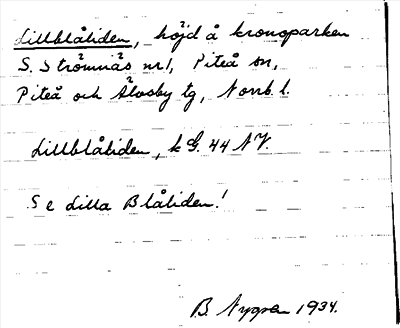 Lillblåliden, höjd å kronoparken
S. Strömnäs nr 1, Piteå sn,
Piteå och Älvsby tg, Norrb. l.
Lillblåliden, k G. 44 NV.
Se Lilla Blåliden!
B. Nygren 1934.